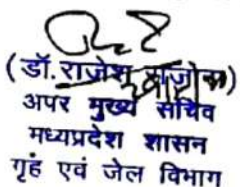 (डॉ. राजेश राजौरा)
अपर मुख्य सचिव
मध्यप्रदेश शासन
गृह एवं जेल विभाग